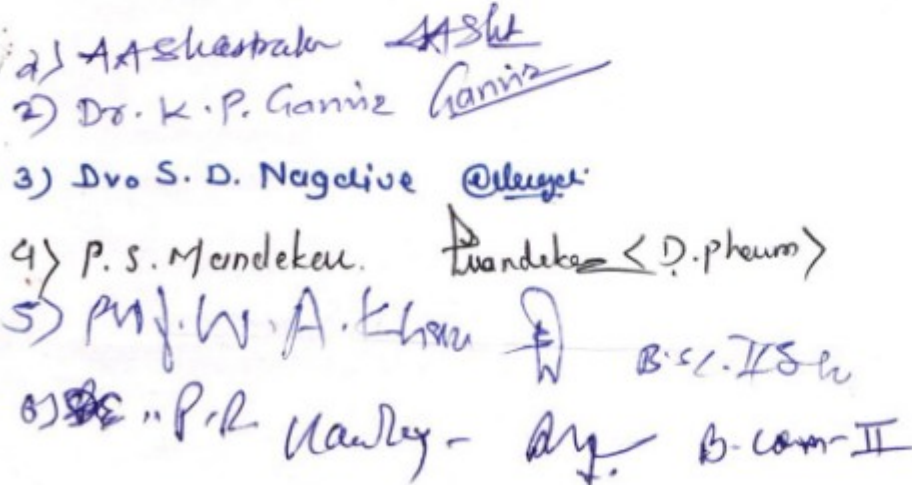 1) A A Shastrakar AASht
2) Dr. K. P. Ganvir Ganvir
3) Dr. S. D. Nagdive
4) P. S. Mandekar. Mandekar <D. Pharm>
5) Prof. W. A. Khan B.Sc. II
6) P. R B. Com-II